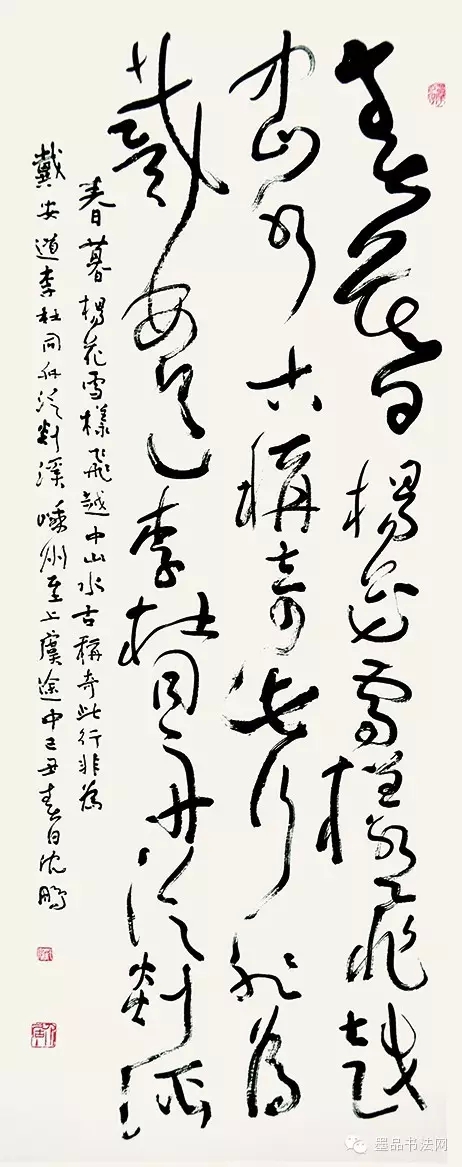 春暮楊花雪樣飛越
中山水古稱奇此行非為
戴安道李杜同舟泛剡溪
春暮楊花雪樣飛越中山水古稱奇此行非為
戴安道李杜同舟泛剡溪嵊州至上虞途中己丑春日沈鵬
墨品书法网